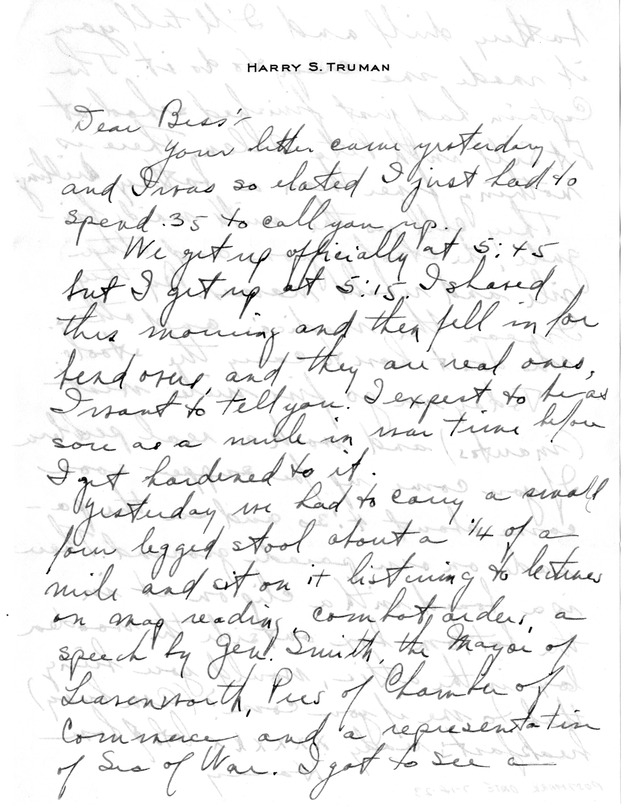 HARRY S. TRUMAN
Dear Bess:-
Your letter came yesterday
and I was so elated I just had to
spend .35 to call you up.
We get up officially at 5:45
but I get up at 5:15. I shaved
this morning and then fell in for
bend overs, and they are real ones,
I want to tell you. I expect to be as
sore as a mule in war time before
I get hardened to it.
Yesterday we had to carry a small
four legged stool about a 1/4 of a
mile and sit on it listining to lectures
on map reading, combat orders, a
speech by Gen. Smith, the Mayor of
Leavenworth, Pres of Chamber of
Commerce and a representative
of Sec of War. I got to see a